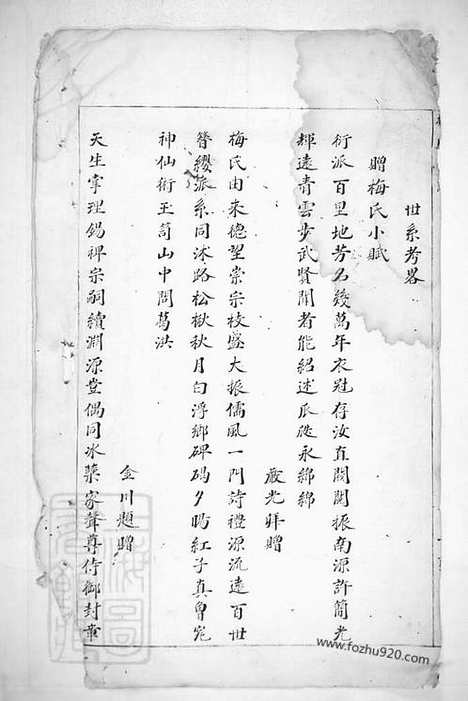 世系考畧
贈梅氏小賦
衍派百里地芳名幾萬年衣冠存汝直閥閱振南源許簡光
輝遠青雲步武賢聞者能紹述瓜瓞永綿綿
嚴光拜贈
梅氏由來德望崇宗枝盛大振儒風一門詩禮源流遠百世
簪纓派系同沭路松楸秋月白浮鄉碑碣夕陽紅子真曾宛
神仙術玉笥山中問葛洪
金川題贈
天生宰理錫裨宗嗣續淵源豈偶同冰櫱家聲尊侍御封章
www.fozhu920.com